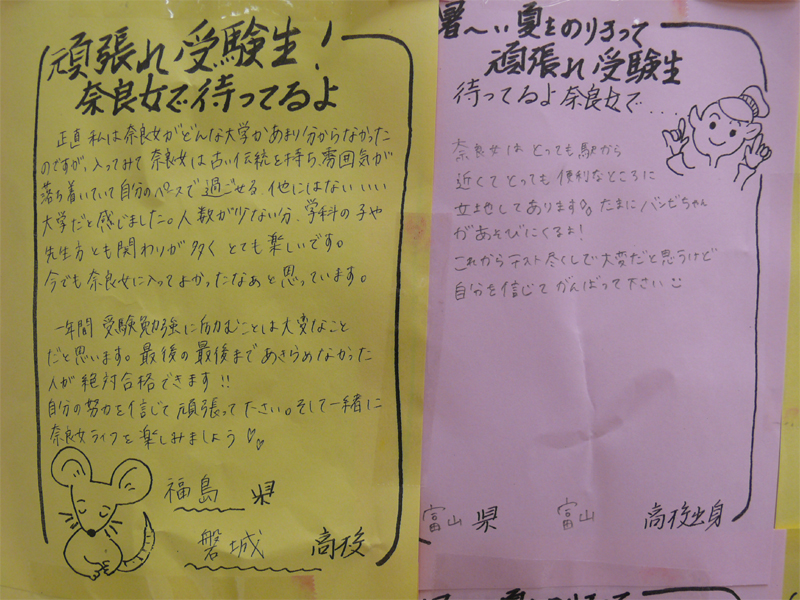 頑張れ受験生！
奈良女で待ってるよ
正直私は奈良女がどんな大学かあまり分からなかった
のですが、入ってみて奈良女は古い伝統を持ち、雰囲気が
落ち着いていて自分のペースで過ごせる、他にはないいい
大学だと感じました。人数が少ない分、学科の子や
先生方とも関わりが多くとても楽しいです。
今でも奈良女に入ってよかったなぁと思っています。
一年間受験勉強に励むことは大変なこと
だと思います。最後の最後まであきらめなかった
人が絶対合格できます!!
自分の努力を信じて頑張って下さい。そして一緒に
奈良女ライフを楽しみましょう♡♡
福島県
磐城高校
暑〜い夏をのりきって
頑張れ受験生
待ってるよ奈良女で...
奈良女はとっても駅から
近くてとっても便利なところに
立地してあります。たまにバンビちゃん
があそびにくるよ!
これからテスト尽くしで大変だと思うけど
自分を信じてがんばって下さい
富山県 富山 高校出身